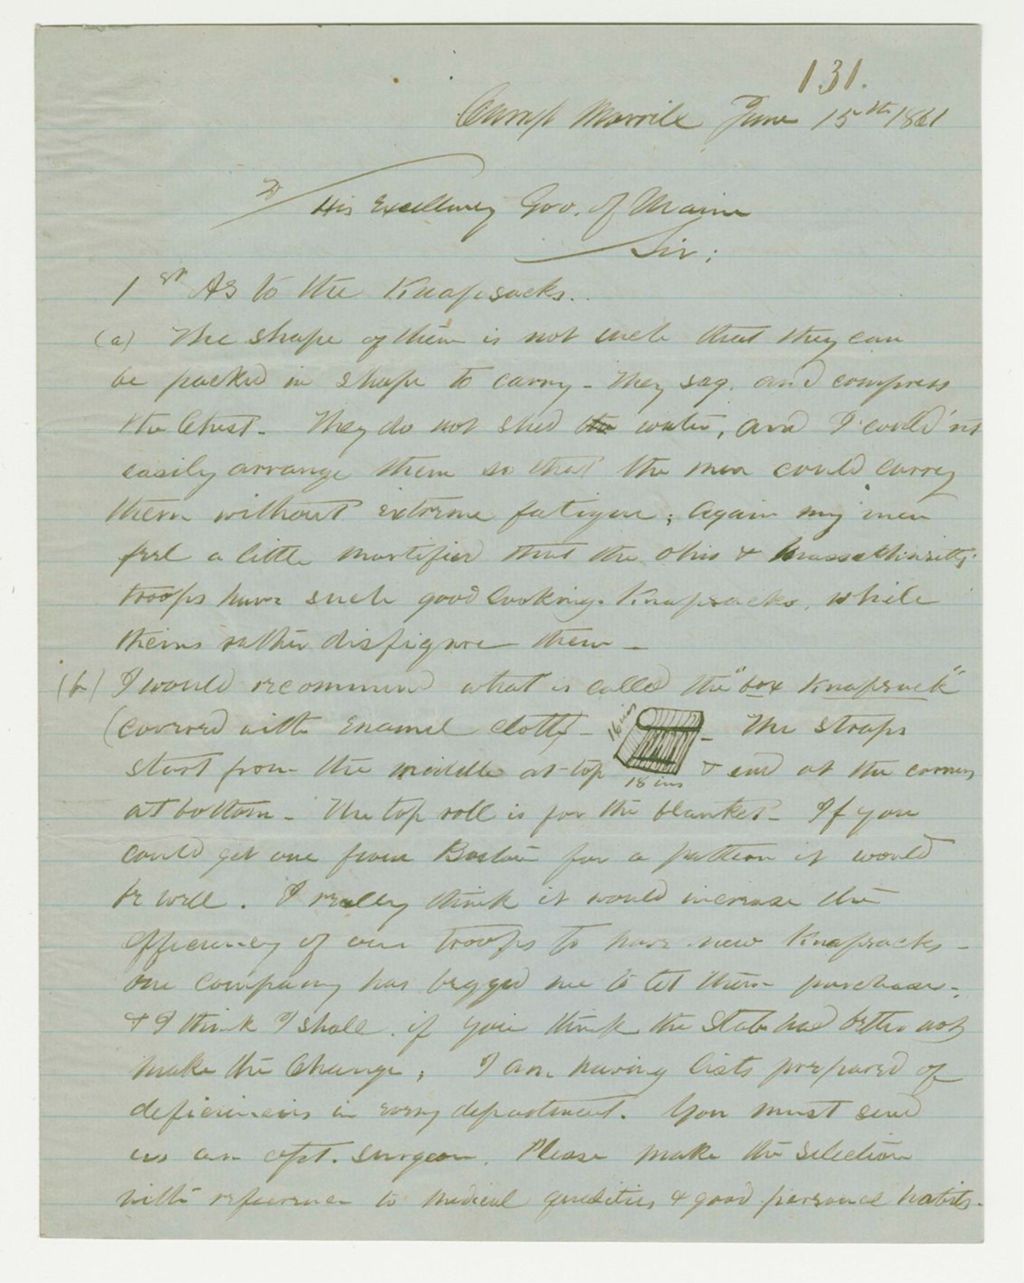 131.
Camp Morrill June 15th 1861
To His Excellency Gov. of Maine
Sir;
1st As to the Knapsacks.
(a) The shape of them is not such that they can
be packed in shape to carry - They sag, and compress
the Chest - They do not shed the water, and I could'nt
easily arrange them so that the men could carry
them without extreme fatigue; Again my men
feel a little mortified that the Ohio & Massachusetts
troops have such good looking Knapsacks, while
theirs rather disfigure them -
(b) I would recommend what is called the "box Knapsack"
(covered with Enamel cloth - 16 ins - The straps
start from the middle at top 18 ins & end at the corners
at bottom - The top roll is for the blanket - If you
could get one from Boston for a pattern it would
be well. I really think it would increase the
efficiency of our troops to have new Knapsacks -
One company has begged me to let them purchase -
& I think I shall if you think the State had better not
make the Change; I am having lists prepared of
deficiencies in every department. You must send
us an asst. surgeon. Please make the selection
with reference to medical qualities & good personal habits.